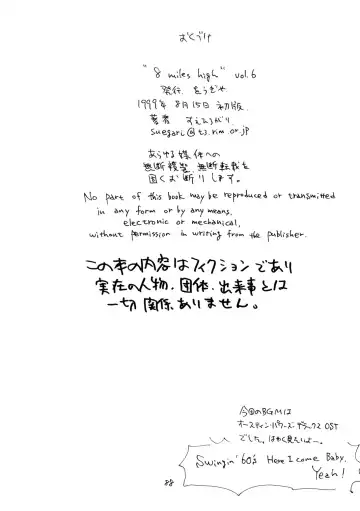 おくづけ
"8 miles high" vol.6
発行 をうぎや
1999年 8月15日 初版
著者 すえひろがり
suegari@t3.rim.or.jp
あらゆる媒体への
無断複製、無断転載を
固くお断りします。
No part of this book may be reproduced or transmitted
in any form or by any means,
electronic or mechanical,
without permission in writing from the publisher.
この本の内容はフィクションであり
実在の人物、団体、出来事とは
一切関係ありません。
今回のBGMは
オースティン・パワーズ・デラックス OST
でした。はやく見たいよー。
Swingin' 60's Here I come Baby.
Yeah!
88